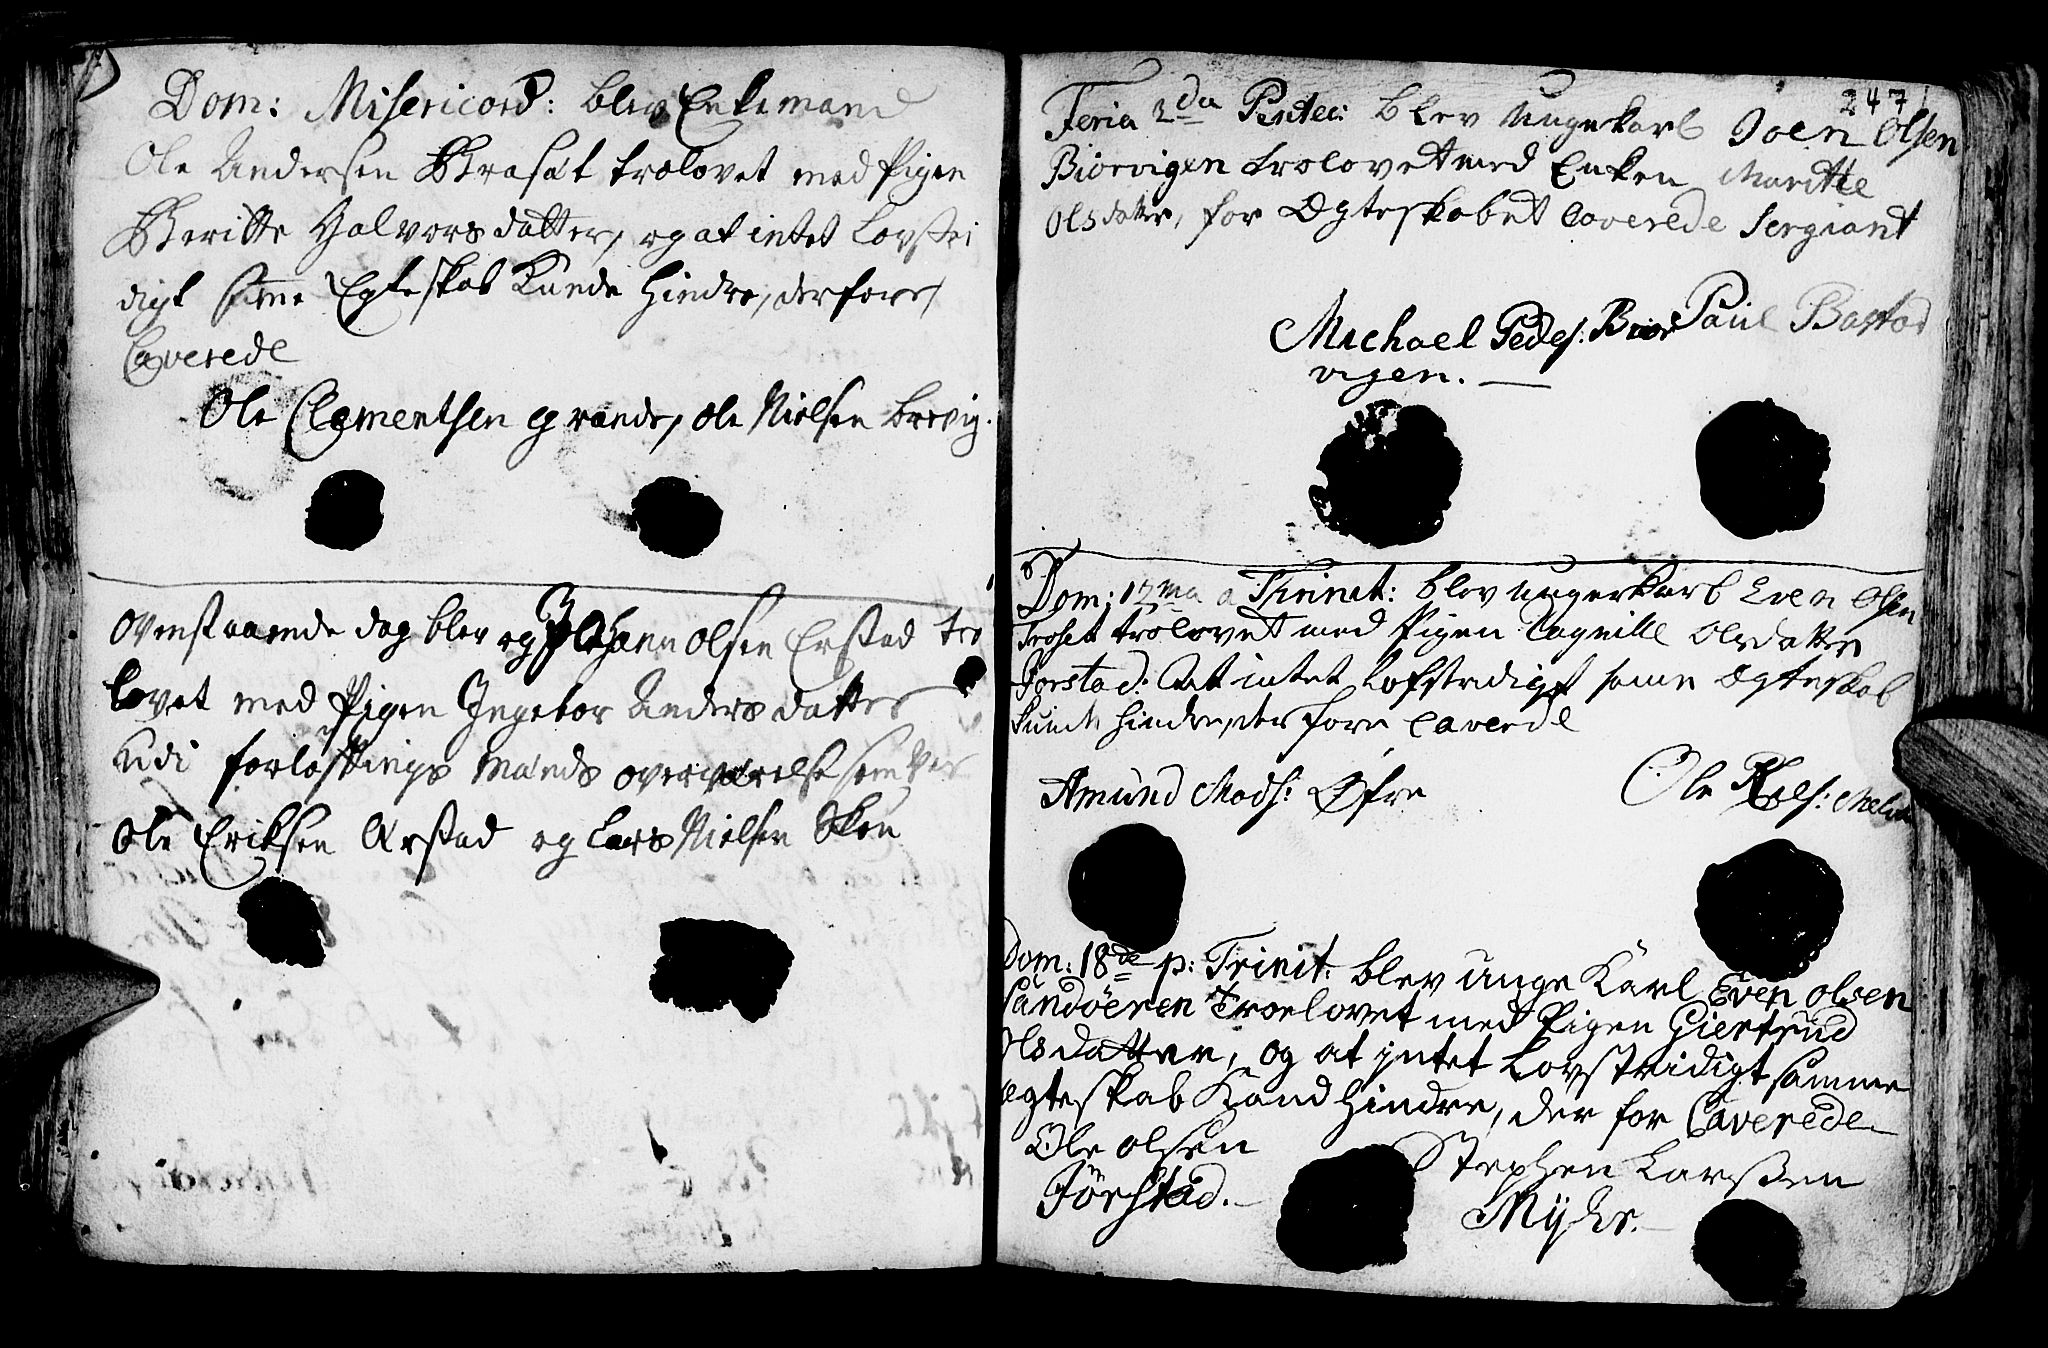 Dom: Misericord: blev Enkemand
Ole Andersen trolovet med Pigen
Beritte Halvorsdatter, og at intet Lovstri
digt Egteskab Kunde Hindre, derfore
Caverede
Ole Clementsen grande, Ole Nielsen brevig.
Ovenstaaende dag blev og Johann Olsen Erstad tro
lovet med Pigen Ingebor Anders datter
udi forløftnings Mænds overværelse som
Ole Eriksen Arstad og Lars Nielsen
247
Feria 2da Pentec: blev Ungekarl Joen Olsen
Biorvigen trolovet med Enken Maritte
Olsdatter, for Ægteskabet Caverede Sergiant
Michael Peders: Bior Paul Bastad
vigen.
Dom: 17ma a Trinit: blev ungerkarl Even Olsen
trolovet med Pigen Olsdatter
Jorstad. At intet Lofstridigt same Ægteskab
hindre, der fore Caverede
Amund Mads: Øfre
Ole
Dom: 18de p: Trinit: blev unge Karl Even Olsen
Sandøeren Troelovet med Pigen Giertrud
Olsdatter, og at intet Lovstridigt samme
Ægteskab Kand Hindre, der for Caverede
Ole Olsen
Stephen Larssen
Jörstad.
Myhr.